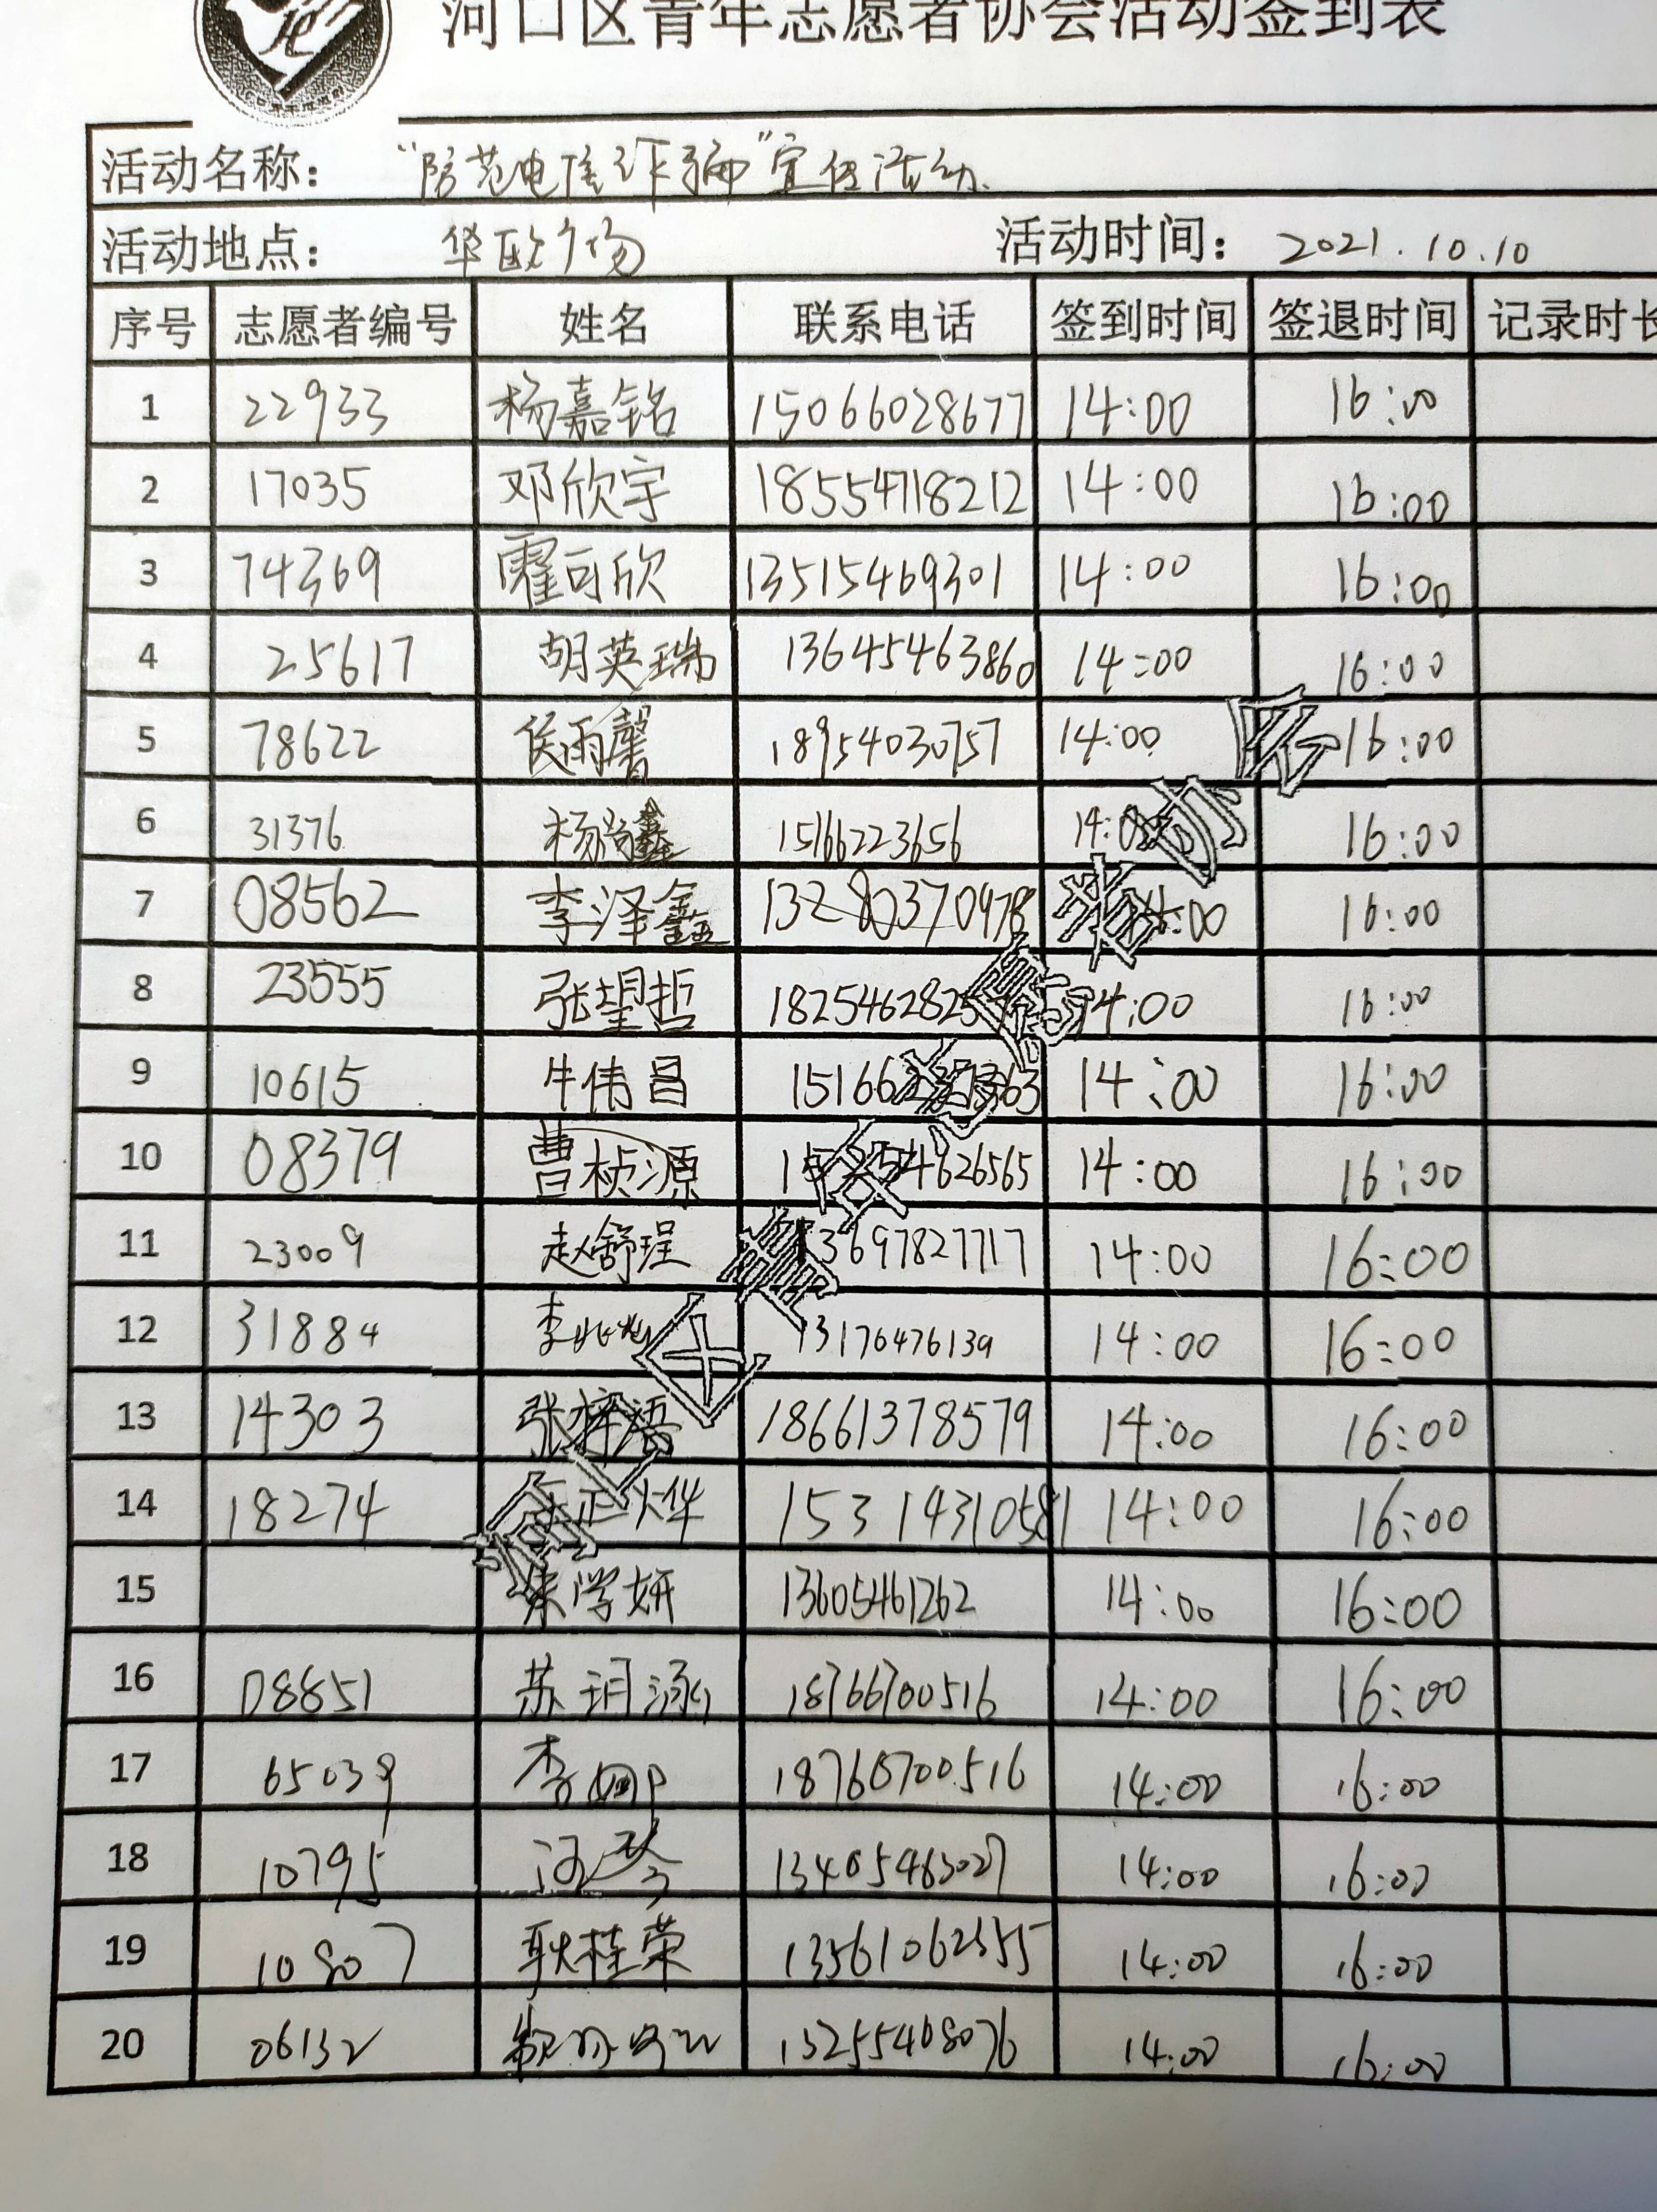 河口区青年志愿者协会活动签到表
活动名称： “防范电信诈骗”宣传活动.
活动地点： 华欧广场 活动时间： 2021.10.10
序号 志愿者编号 姓名 联系电话 签到时间 签退时间 记录时长
1 22933 杨嘉铭 15066028677 14:00 16:00
2 17035 邓欣宇 18554718212 14:00 16:00
3 74369 霍可欣 13515469301 14:00 16:00
4 25617 胡英瑞 13645463860 14:00 16:00
5 78622 侯雨馨 18954030757 14:00 16:00
6 31376 杨尚鑫 15166223656 14:00 16:00
7 08562 李泽鑫 13280370978 14:00 16:00
8 23555 张望哲 14:00 16:00
9 10615 牛伟昌 14:00 16:00
10 08379 曹桢源 14:00 16:00
11 23009 赵舒珵 13697827717 14:00 16:00
12 31884 13176476139 14:00 16:00
13 14303 张梓涵 18661378579 14:00 16:00
14 18274 15314310581 14:00 16:00
15 朱学妍 13605461262 14:00 16:00
16 08851 苏玥涵 18766700516 14:00 16:00
17 65039 李娜 18766700516 14:00 16:00
18 10795 13405463027 14:00 16:00
19 10807 耿桂荣 13561062355 14:00 16:00
20 06132 13255468076 14:00 16:00
河口区青年志愿者协会